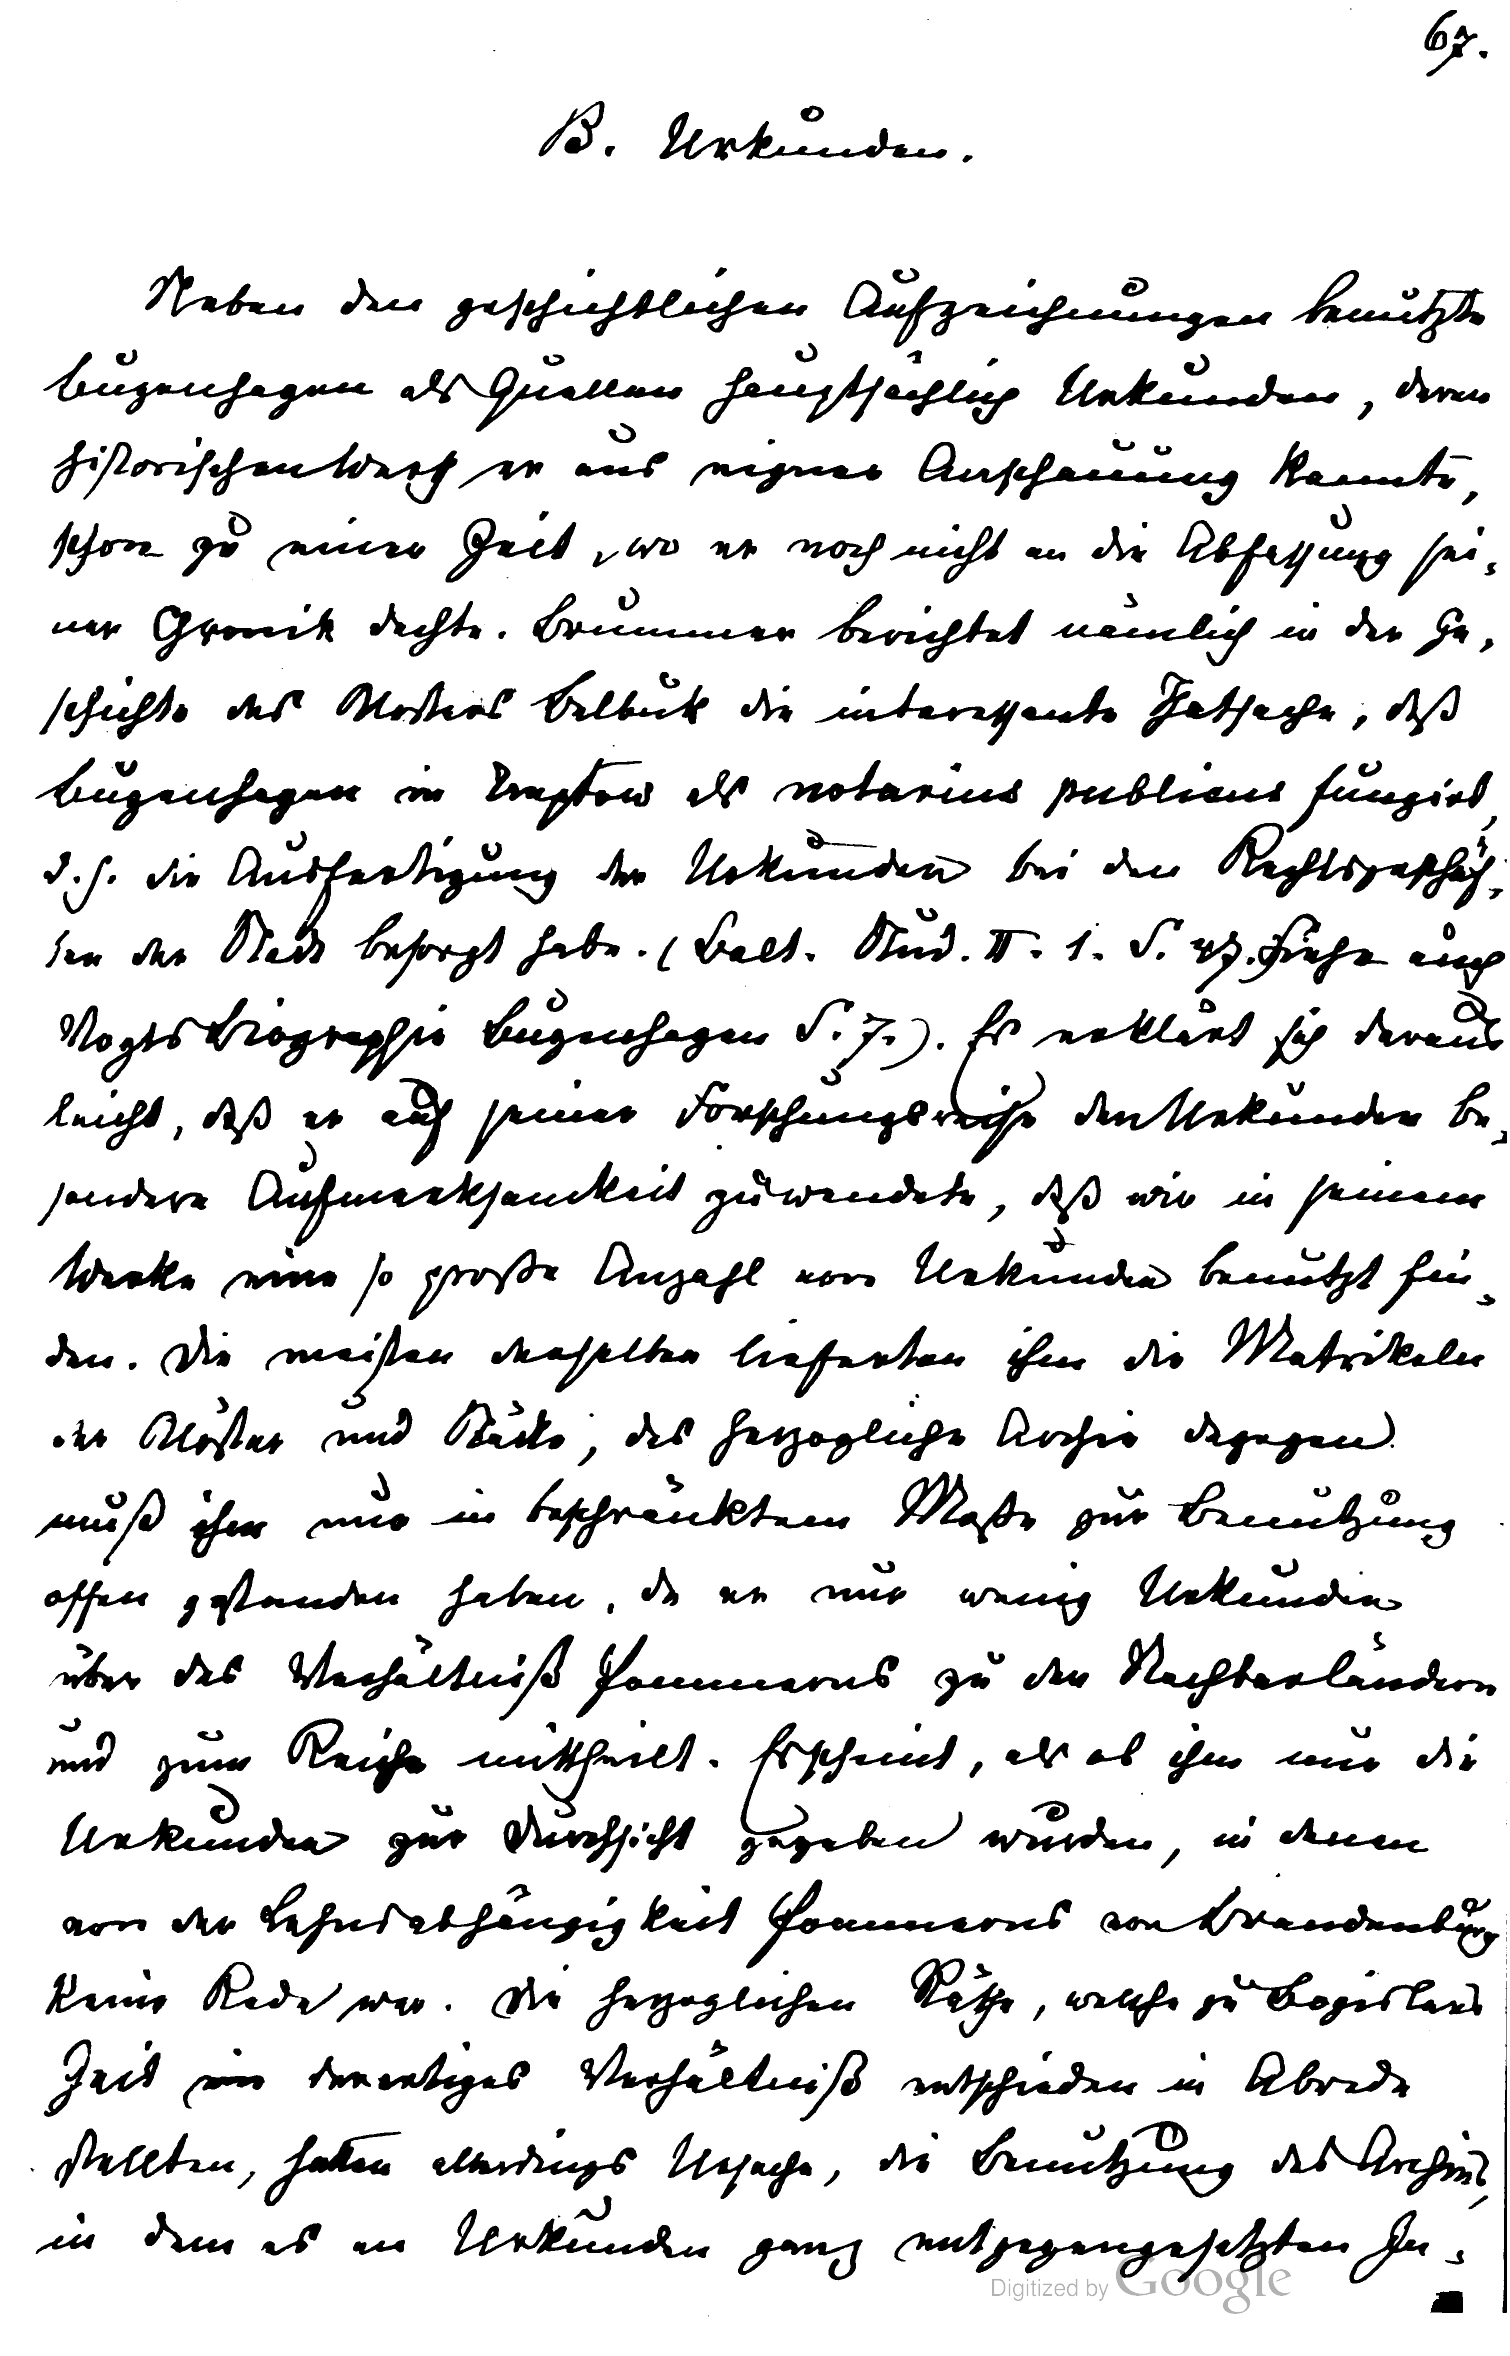 67.
B. Urkunden.
Neben den geschichtlichen Aufzeichnungen benutzte
Bugenhagen als Quellen hauptsächlich Urkunden, deren
historischen Werth er aus eigner Anschauung kannte,
schon zu einer Zeit, wo er noch nicht an die Abfassung sei-
ner Chronik dachte. Brummer berichtet nämlich in der Ge-
schichte des Klosters Belbuk die interessante Thatsache, daß
Bugenhagen in Treptow als notarius publicus fungirt,
d. h. die Ausfertigung der Urkunden bei den Rechtsgeschäf-
ten der Stadt besorgt habe. (Balt. Stud. II. 1. S. Siehe auch
Vogts Biographie Bugenhagen S. 7.). Es erklärt sich daraus
leicht, daß er auf seiner Forschungsreise den Urkunden be-
sondere Aufmerksamkeit zuwendete, daß wir in seinem
Werke eine so große Anzahl von Urkunden benutzt fin-
den. Die meisten derselben lieferten ihm die Matrikeln
der Klöster und Städte, das herzogliche Archiv dagegen
muß ihm nur in beschränktem Maße zur Benutzung
offen gestanden haben, da er nur wenig Urkunden
über das Verhältniß Pommerns zu den Nachbarländern
und zum Reiche mittheilt. Es scheint, als ob ihm nur die
Urkunden zur Durchsicht gegeben wurden, in denen
von der Lehnsabhängigkeit Pommerns von Brandenburg
keine Rede war. Die herzoglichen Räthe, welche zu Bogislavs
Zeit ein derartiges Verhältniß entschieden in Abrede
stellten, hatten allerdings Ursache, die Benutzung des Archivs,
in dem es an Urkunden ganz entgegengesetzten In-
Digitized by Google